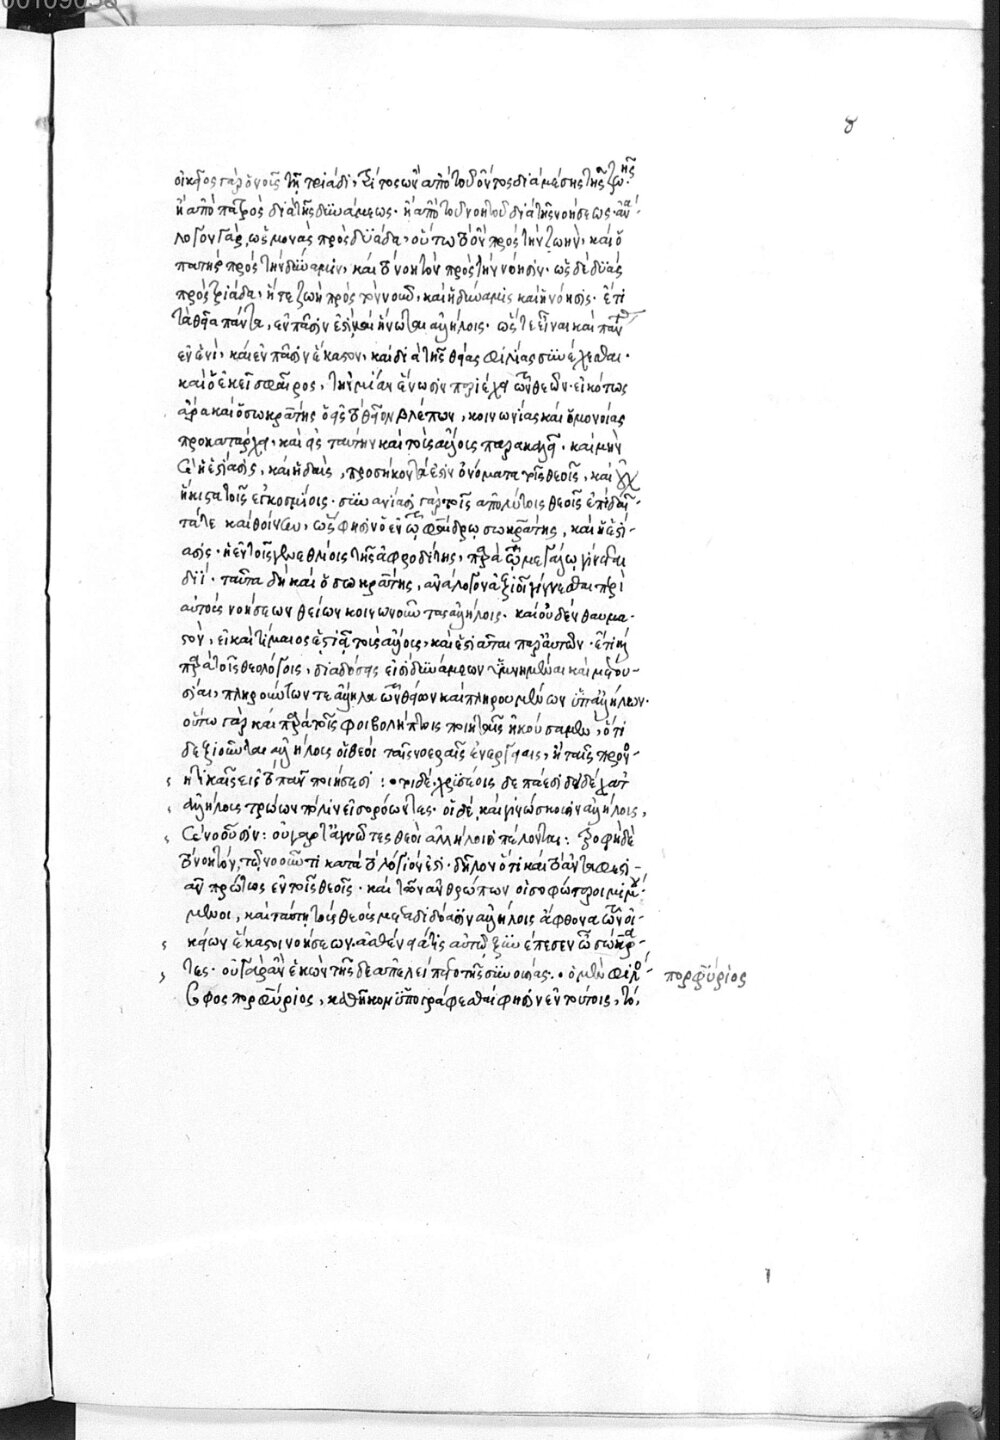 8
οἰκεῖος γὰρ ὁ νοῦς τῇ τριάδι, τρίτος ὢν ἀπὸ τοῦ ὄντος διὰ μέσης τῆς ζωῆς
ἢ ἀπὸ πατρὸς διὰ τῆς δυνάμεως· ἢ ἀπὸ τοῦ νοητοῦ διὰ τῆς νοήσεως· ἀνά-
λογον γὰρ, ὡς μονὰς πρὸς δυάδα, οὕτω τὸ ὂν πρὸς τὴν ζωὴν, καὶ ὁ
πατὴρ πρὸς τὴν δύναμιν, καὶ τὸ νοητὸν πρὸς τὴν νόησιν· ὡς δὲ δυὰς
πρὸς τριάδα, ἥ τε ζωὴ πρὸς τὸν νοῦν, καὶ ἡ δύναμις καὶ ἡ νόησις· ἔτι
τὰ θεῖα πάντα, ἐν πᾶσίν ἐστι καὶ ἥνωται ἀλλήλοις· ὥστε εἶναι καὶ πάντα
ἐν ἑνὶ, καὶ ἐν πᾶσιν ἕκαστον, καὶ διὰ τῆς θείας φιλίας συνέχεσθαι·
καὶ ὁ ἐκεῖ σφαῖρος, τὴν μίαν ἕνωσιν περιέχει τῶν θεῶν· εἰκότως
ἄρα καὶ ὁ σωκράτης ὁ εἰς τὸ θεῖον βλέπων, κοινωνίας καὶ ὁμονοίας
προκατάρχει, καὶ εἰς ταύτην καὶ τοὺς ἄλλους παρακαλεῖ· καὶ μὴν
καὶ ἡ ἑστίασις, καὶ ἡ δαὶς, προσήκοντά ἐστιν ὀνόματα τοῖς θεοῖς, καὶ οὐχ
ἥκιστα τοῖς ἐγκοσμίοις· συνανίασι γὰρ τοῖς ἀπολύτοις θεοῖς ἐπὶ δαῖ-
τά τε καὶ θοίνην, ὥς φησιν ὁ ἐν τῷ φαίδρῳ σωκράτης, καὶ ἡ ἑστί-
ασις· ἡ ἐν τοῖς γενεθλίοις τῆς ἀφροδίτης, παρὰ τῷ μεγάλῳ γίνεται
διί· ταῦτα δὴ καὶ ὁ σωκράτης, ἀνάλογον ἀξιοῖ γίγνεσθαι περὶ
αὐτοὺς νοήσεων θείων κοινωνοῦντας ἀλλήλοις· καὶ οὐδὲν θαυμα-
στὸν, εἰ καὶ τίμαιος ἑστιᾷ τοὺς ἄλλους, καὶ ἑστιᾶται παρ' αὐτῶν· ἔτι δὲ
παρὰ τοῖς θεολόγοις, διαδόσεις εἰσὶ δυνάμεων ὑμνημέναι καὶ μετου-
σίαι, πληρούντων τε ἄλληλα τῶν θείων καὶ πληρουμένων ὑπ' ἀλλήλων·
οὕτω γὰρ καὶ παρὰ τοῖς φοιβολήπτοις ποιηταῖς ἠκούσαμεν, ὅτι
δεξιοῦνται ἀλλήλους οἱ θεοὶ ταῖς νοεραῖς ἐνεργείαις, ἢ ταῖς προνο-
ητικαῖς εἰς τὸ πᾶν ποιήσεσι: τοὶ δὲ χρυσέοις δεπάεσσι δειδέχατ'
ἀλλήλους τρώων πόλιν εἰσορόωντες· οἱ δὲ, καὶ γινώσκουσιν ἀλλήλους,
καὶ νοοῦσιν: οὐ γάρ τ' ἀγνῶτες θεοὶ ἀλλήλοισι πέλονται: τροφὴ δὲ
τὸ νοητὸν, τῷ νοοῦντι κατὰ τὸ λόγιόν ἐστι· δῆλον ὅτι καὶ τὸ ἀνταφεστι-
ᾶν πρώτως ἐν τοῖς θεοῖς· καὶ τῶν ἀνθρώπων οἱ σοφώτεροι μιμού-
μενοι, καὶ ταύτῃ τοὺς θεοὺς μεταδιδόασιν ἀλλήλοις ἄφθονα τῶν οἰ-
κείων ἕκαστοι νοήσεων. ἀσθένειά τις αὐτῷ ξυνέπεσεν ὦ σώκρα-
τες· οὐ γὰρ ἂν ἑκὼν τῆσδε ἀπελείπετο τῆς συνουσίας. ὁ μὲν φιλό-
σοφος πορφύριος, καθῆκον ὑπογράφεσθαί φησιν ἐν τούτοις, τὸ,
πορφύριος